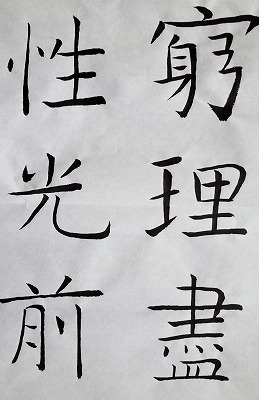 窮理盡
性光前